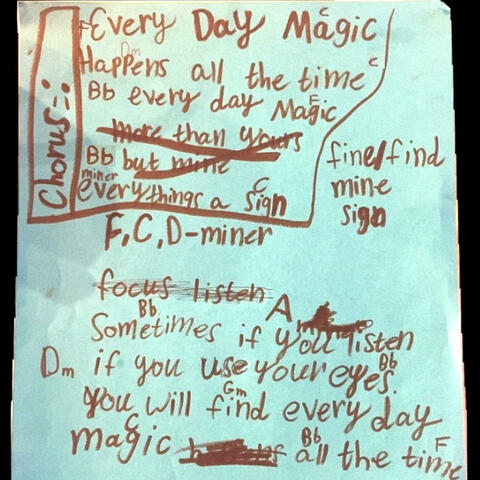 Chorus:
F Every Day Magic C
Happens Dm all the time C
Bb every day Magic F
more than yours
Bb but mine
miner everythings a sign C
fine/find
mine
sign
F, C, D-miner
focus listen
Sometimes Bb if you listen A
Dm if you use your eyes. Bb
you will find Gm every day
magic C all the time Bb F